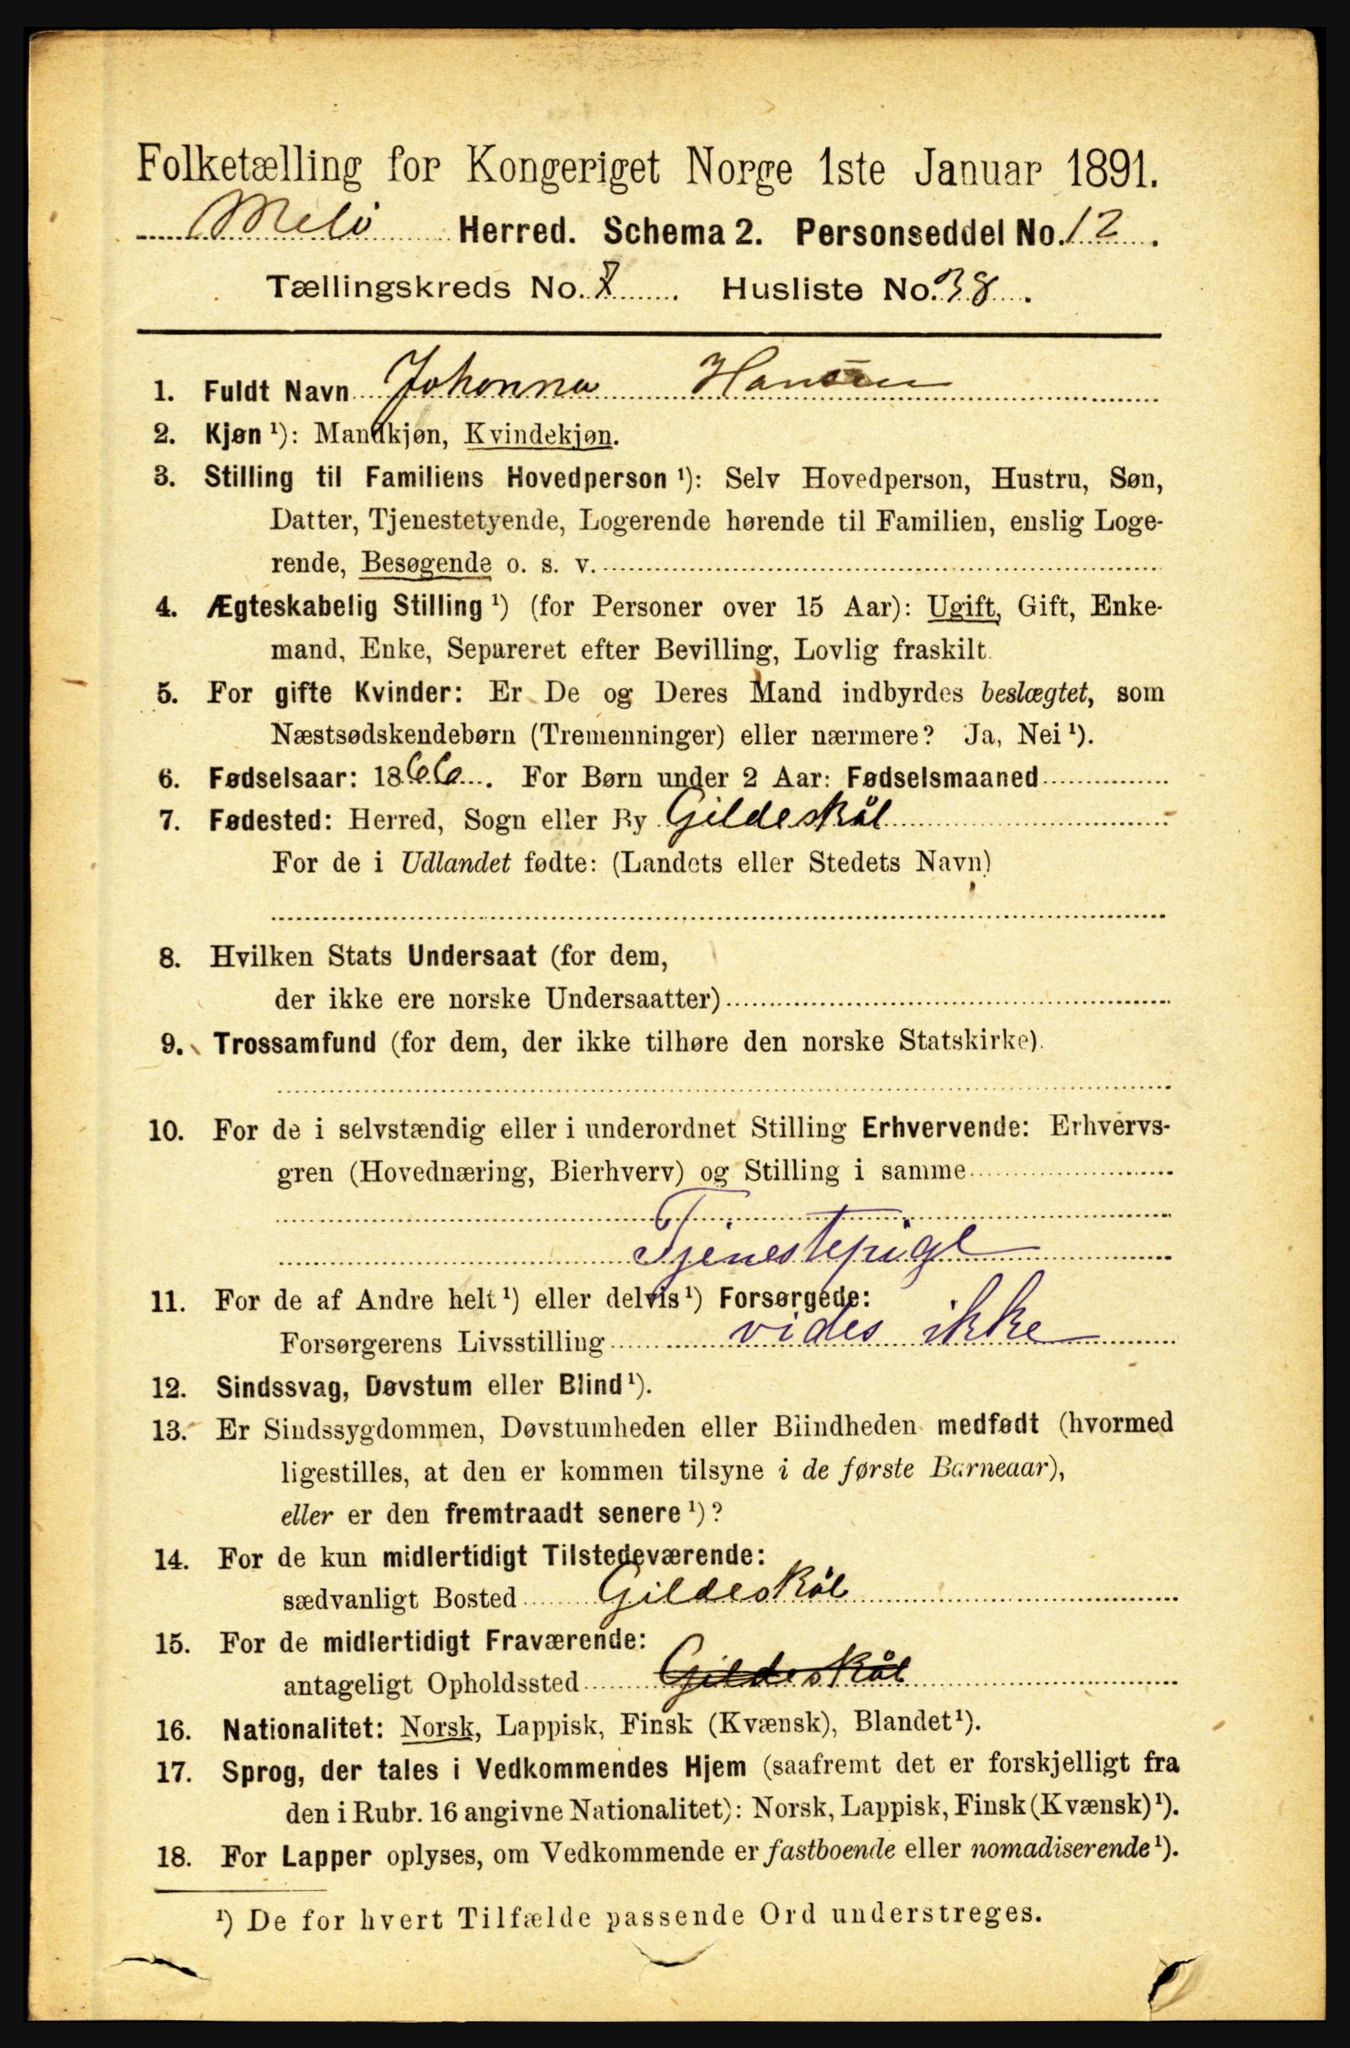 Folketælling for Kongeriget Norge 1ste Januar 1891.
Melö Herred. Schema 2. Personseddel No. 12.
Tællingskreds No. 8. Husliste No. 38.
1. Fuldt Navn Johanna Hansen
2. Kjøn ¹): Mandkjøn, Kvindekjøn.
3. Stilling til Familiens Hovedperson ¹): Selv Hovedperson, Hustru, Søn,
Datter, Tjenestetyende, Logerende hørende til Familien, enslig Loge-
rende, Besøgende o. s. v.
4. Ægteskabelig Stilling ¹) (for Personer over 15 Aar): Ugift, Gift, Enke-
mand, Enke, Separeret efter Bevilling, Lovlig fraskilt.
5. For gifte Kvinder: Er De og Deres Mand indbyrdes beslægtet, som
Næstsødskendebørn (Tremenninger) eller nærmere? Ja, Nei ¹).
6. Fødselsaar: 1866. For Børn under 2 Aar: Fødselsmaaned
7. Fødested: Herred, Sogn eller By Gildeskål
For de i Udlandet fødte: (Landets eller Stedets Navn)
8. Hvilken Stats Undersaat (for dem,
der ikke ere norske Undersaatter)
9. Trossamfund (for dem, der ikke tilhøre den norske Statskirke).
10. For de i selvstændig eller i underordnet Stilling Erhvervende: Erhvervs-
gren (Hovednæring, Bierhverv) og Stilling i samme
Tjenestepige
11. For de af Andre helt ¹) eller delvis ¹) Forsørgede:
Forsørgerens Livsstilling vides ikke
12. Sindssvag, Døvstum eller Blind ¹).
13. Er Sindssygdommen, Døvstumheden eller Blindheden medfødt (hvormed
ligestilles, at den er kommen tilsyne i de første Barneaar),
eller er den fremtraadt senere ¹)?
14. For de kun midlertidigt Tilstedeværende:
sædvanligt Bosted Gildeskål
15. For de midlertidigt Fraværende:
antageligt Opholdssted Gildeskål
16. Nationalitet: Norsk, Lappisk, Finsk (Kvænsk), Blandet ¹).
17. Sprog, der tales i Vedkommendes Hjem (saafremt det er forskjelligt fra
den i Rubr. 16 angivne Nationalitet): Norsk, Lappisk, Finsk (Kvænsk) ¹).
18. For Lapper oplyses, om Vedkommende er fastboende eller nomadiserende ¹).
¹) De for hvert Tilfælde passende Ord understreges.